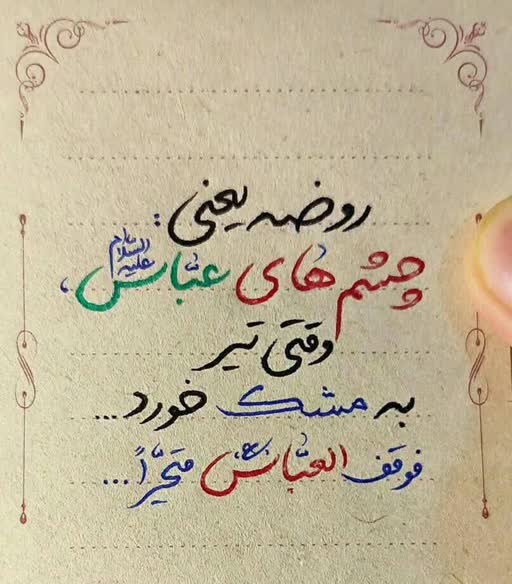 روضه یعنی:
چشم‌های عباس علیه السلام،
وقتی تیر
به مشک خورد...
فوقف العبّاس متحیّراً...